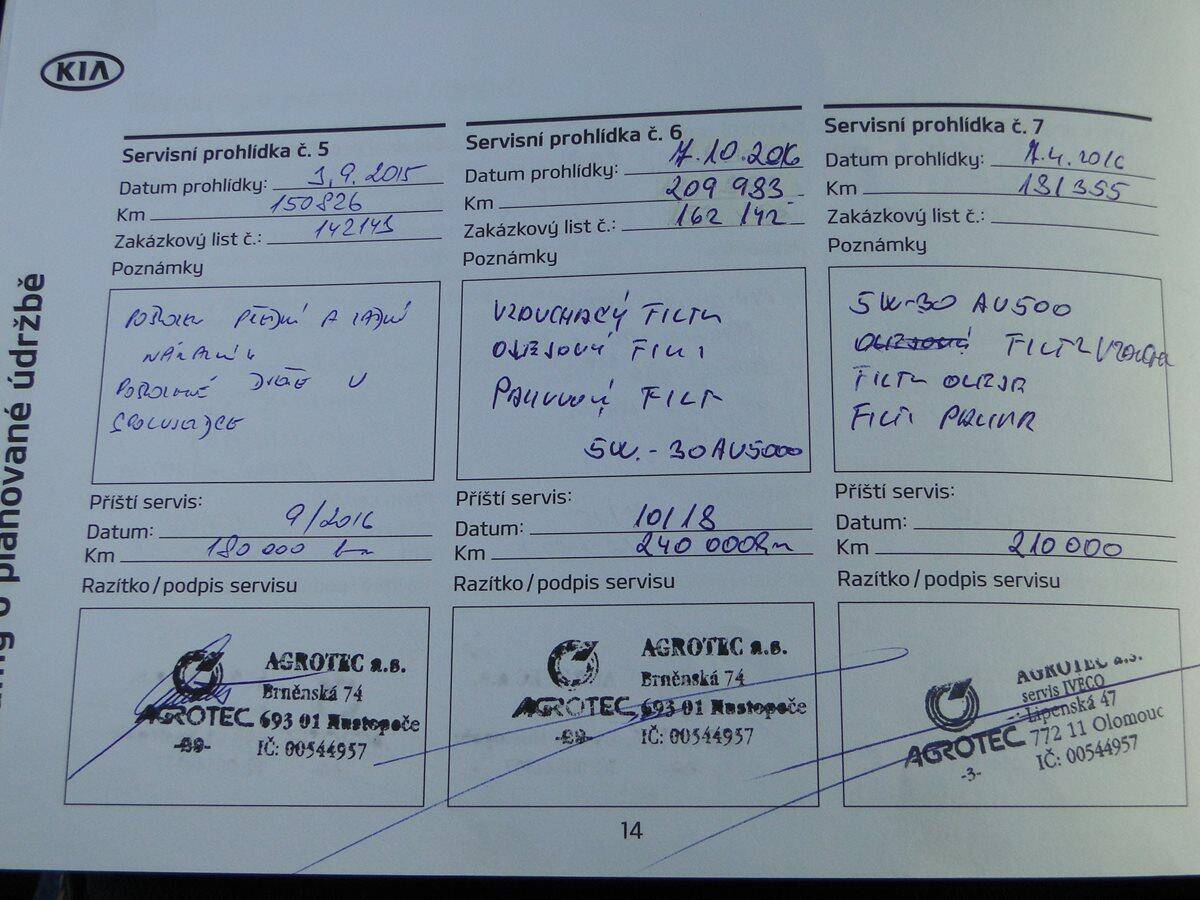 KIA
Servisní prohlídka č. 5
Datum prohlídky: 3,9. 2015
Km 150826
Zakázkový list č.: 142143
Poznámky
PŘEDNÍ A ZADNÍ
NÁRAZNÍK
V
Příští servis:
Datum: 9/2016
Km 180 000 km
Razítko/podpis servisu
AGROTEC a.s.
Brněnská 74
AGROTEC 693 01 Hustopeče
IČ: 00544957
Servisní prohlídka č. 6
Datum prohlídky: 17.10.2016
Km 209 983
Zakázkový list č.: 162 142
Poznámky
VZDUCHACÝ FILTR
OLEJOVÝ FILT
PALIVOVÝ FILTR
5W.-30 AU5000
Příští servis:
Datum: 10/18
Km 240 000 km
Razítko/podpis servisu
AGROTEC a.s.
Brněnská 74
AGROTEC 693 01 Hustopeče
IČ: 00544957
Servisní prohlídka č. 7
Datum prohlídky: 7.4.2016
Km 181355
Zakázkový list č.:
Poznámky
5W-30 AU500
FILTR VZDUCHU
FILTR OLEJE
FILTR PALIVA
Příští servis:
Datum:
Km 210 000
Razítko/podpis servisu
AGROTEC a.s.
servis IVECO
Lipenská 47
AGROTEC 772 11 Olomouc
-3- IČ: 00544957
14
o plánované údržbě